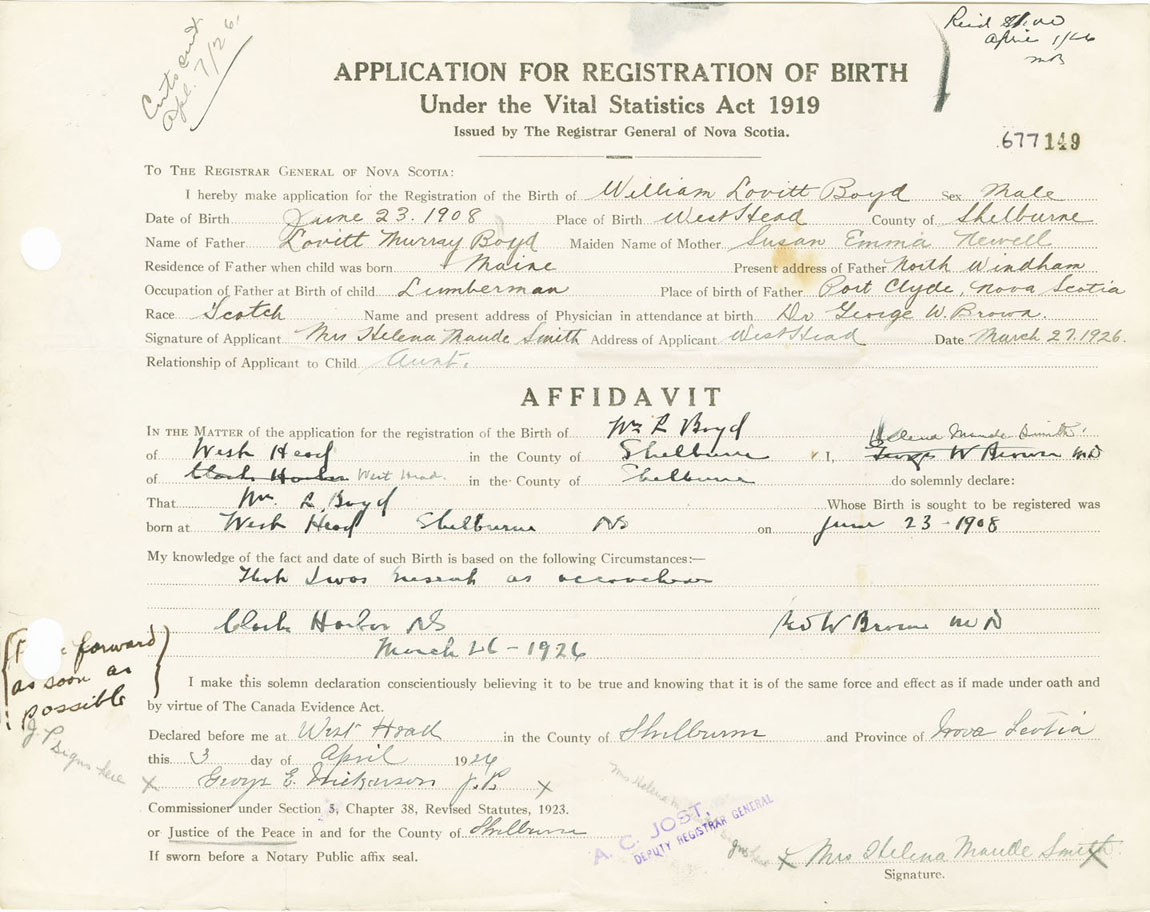 Apl. 7/26
April 1/26
APPLICATION FOR REGISTRATION OF BIRTH
Under the Vital Statistics Act 1919
Issued by The Registrar General of Nova Scotia.
677149
To The Registrar General of Nova Scotia:
I hereby make application for the Registration of the Birth of William Lovitt Boyd Sex Male
Date of Birth June 23. 1908 Place of Birth West Head County of Shelburne
Name of Father Lovitt Murray Boyd Maiden Name of Mother Susan Emma Newell
Residence of Father when child was born Maine Present address of Father North Windham
Occupation of Father at Birth of child Lumberman Place of birth of Father Port Clyde, Nova Scotia
Race Scotch Name and present address of Physician in attendance at birth Dr George W. Brown.
Signature of Applicant Mrs Helena Maude Smith Address of Applicant West Head Date March 27. 1926.
Relationship of Applicant to Child Aunt.
AFFIDAVIT
In the Matter of the application for the registration of the Birth of Wm L Boyd Helena Maude Smith
of West Head in the County of Shelburne I, George W Brown MD
of Clark Harbor West Head. in the County of Shelburne do solemnly declare:
That Wm. L. Boyd Whose Birth is sought to be registered was
born at West Head Shelburne NS on June 23 - 1908
My knowledge of the fact and date of such Birth is based on the following Circumstances:—
That I was present as accoucheur
Clark Harbor NS W Brown M D
March 26 - 1926
forward
as soon as
possible
I make this solemn declaration conscientiously believing it to be true and knowing that it is of the same force and effect as if made under oath and
by virtue of The Canada Evidence Act.
J. P signs here
Declared before me at West Head in the County of Shelburne and Province of Nova Scotia
this 3 day of April 1926
x George E. Nickerson J. P. x
Commissioner under Section 5, Chapter 38, Revised Statutes, 1923.
or Justice of the Peace in and for the County of Shelburne
If sworn before a Notary Public affix seal.
Mrs Helena
A. C. JOST,
DEPUTY REGISTRAR GENERAL
x Mrs Helena Maude Smith x
Signature.